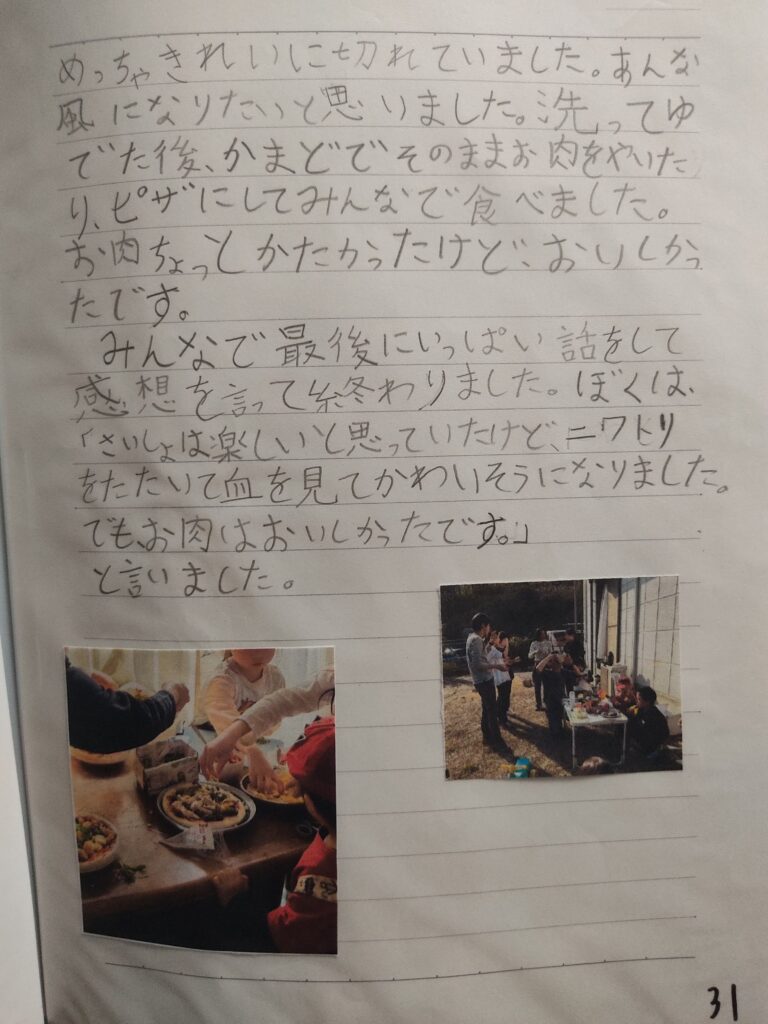 めっちゃきれいに切れていました。あんな
風になりたいと思いました。洗ってゆ
でた後、かまどでそのままお肉をやいた
り、ピザにしてみんなで食べました。
お肉ちょっとかたかったけど、おいしかっ
たです。
みんなで最後にいっぱい話をして
感想を言って終わりました。ぼくは、
「さいしょは楽しいと思っていたけど、ニワトリ
をたたいて血を見てかわいそうになりました。
でも、お肉はおいしかったです。」
と言いました。
31